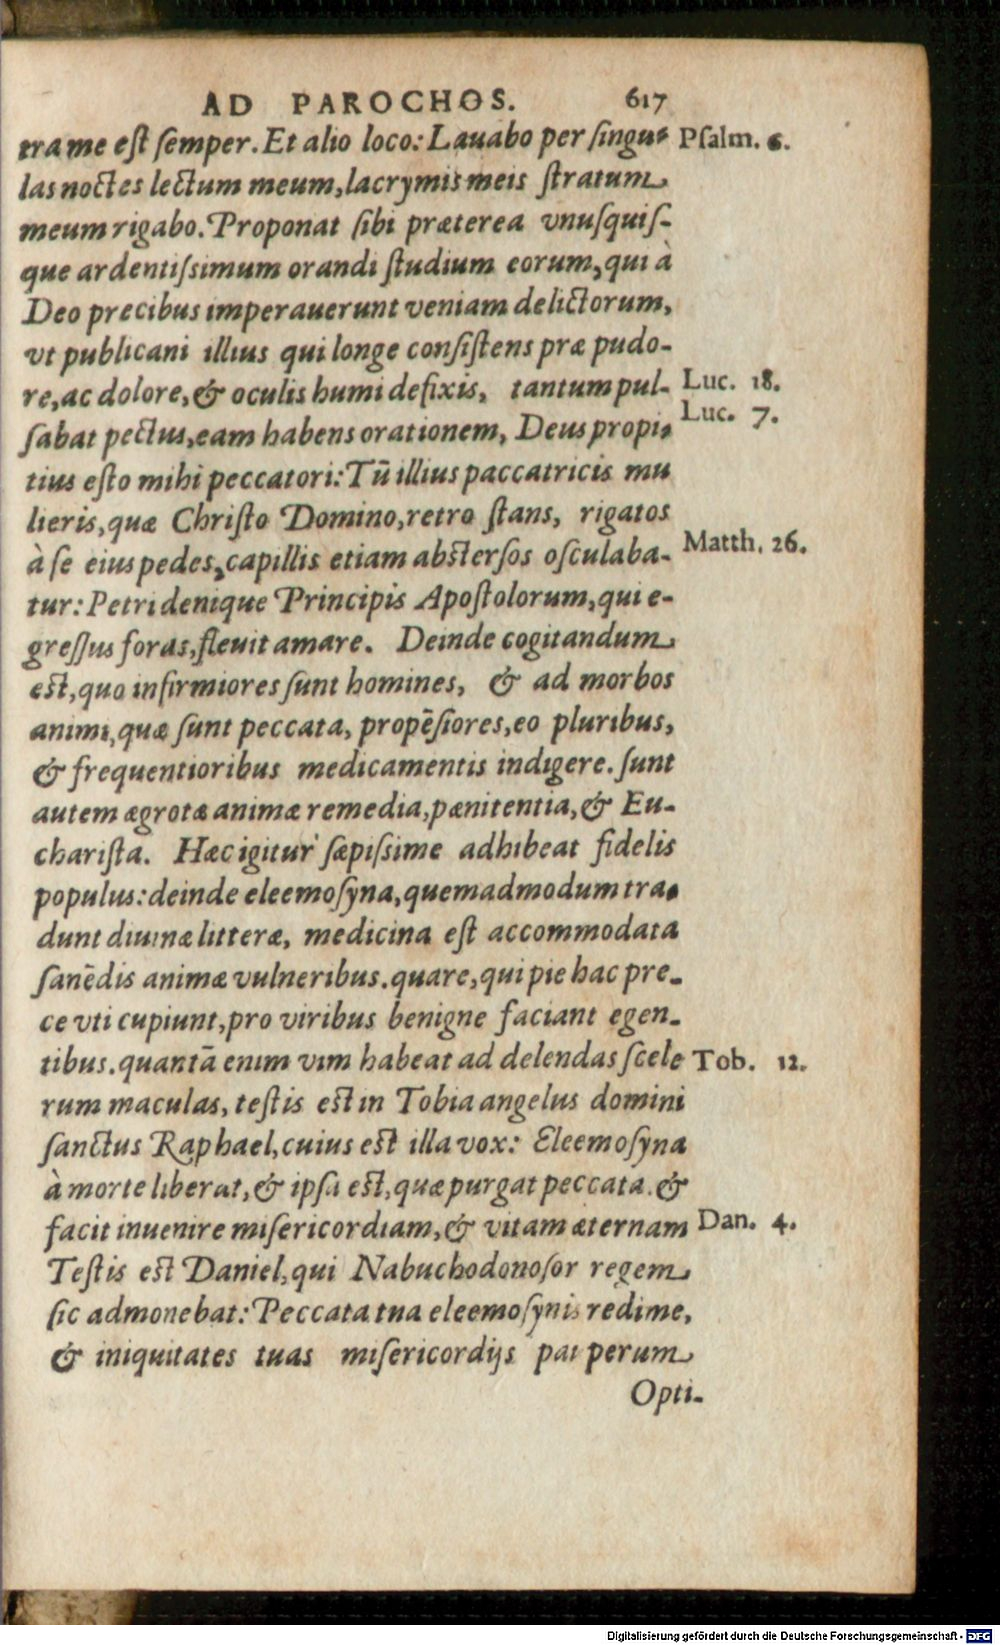 AD PAROCHOS. 617
tra me est semper. Et alio loco: Lauabo per singu- Psalm. 6.
las noctes lectum meum, lacrymis meis stratum
meum rigabo. Proponat sibi præterea vnusquis-
que ardentissimum orandi studium eorum, qui à
Deo precibus imperauerunt veniam delictorum,
vt publicani illius qui longe consistens præ pudo-
re, ac dolore, & oculis humi defixis, tantum pul- Luc. 18.
sabat pectus, eam habens orationem, Deus propi- Luc. 7.
tius esto mihi peccatori: Tū illius paccatricis mu
lieris, quæ Christo Domino, retro stans, rigatos
à se eius pedes, capillis etiam abstersos osculaba- Matth. 26.
tur: Petri denique Principis Apostolorum, qui e-
gressus foras, fleuit amare. Deinde cogitandum
est, quo infirmiores sunt homines, & ad morbos
animi, quæ sunt peccata, propēsiores, eo pluribus,
& frequentioribus medicamentis indigere. sunt
autem ægrotæ animæ remedia, pænitentia, & Eu-
charista. Hæc igitur sæpissime adhibeat fidelis
populus: deinde eleemosyna, quemadmodum tra-
dunt diuinæ litteræ, medicina est accommodata
sanēdis animæ vulneribus. quare, qui pie hac pre-
ce vti cupiunt, pro viribus benigne faciant egen-
tibus. quantā enim vim habeat ad delendas scele Tob. 12.
rum maculas, testis est in Tobia angelus domini
sanctus Raphael, cuius est illa vox: Eleemosyna
à morte liberat, & ipsa est, quæ purgat peccata. &
facit inuenire misericordiam, & vitam æternam Dan. 4.
Testis est Daniel, qui Nabuchodonosor regem
sic admonebat: Peccata tua eleemosynis redime,
& iniquitates tuas misericordijs pauperum
Opti-
Digitalisierung gefördert durch die Deutsche Forschungsgemeinschaft - DFG